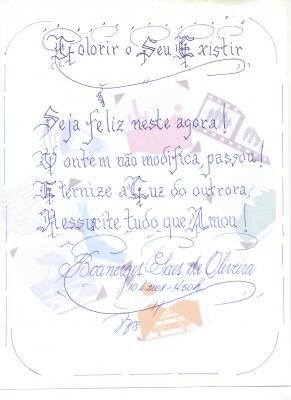 Colorir o Seu Existir
Seja feliz neste agora!
O ontem não modifica, passou!
Eternize a Luz do outrora
Ressuscite tudo que Amou!
Boanerges Saes de Oliveira
10.4.2008 - 14:50h